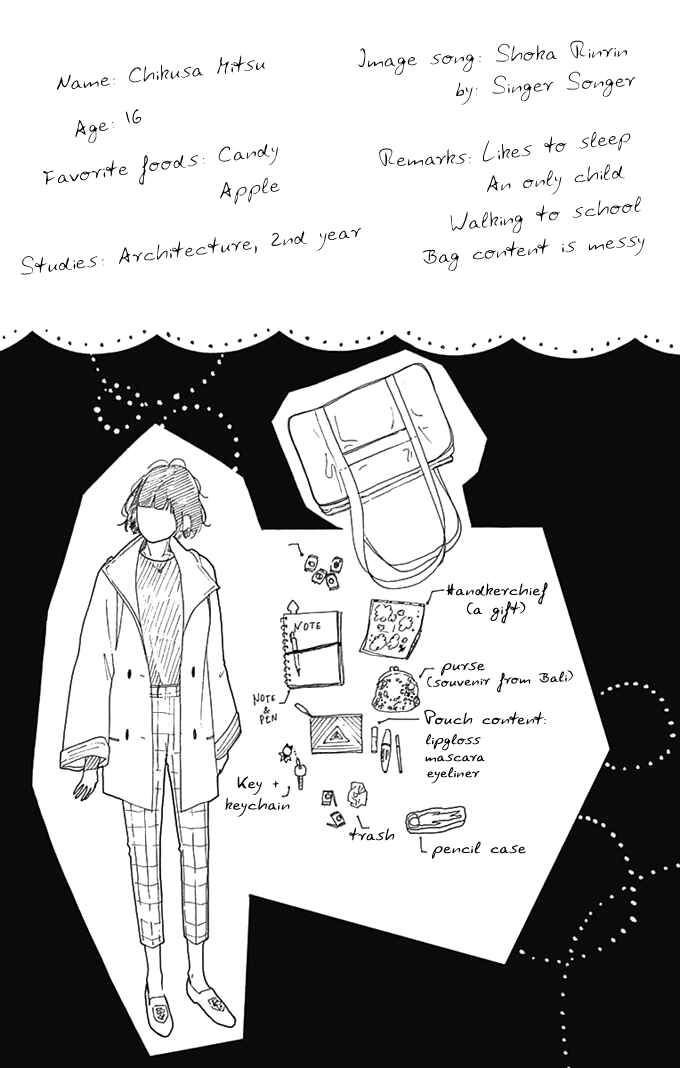 Name: Chikusa Mitsu
Age: 16
Favorite foods: Candy
Apple
Studies: Architecture, 2nd year
Image song: Shoka Rinrin
by: Singer Songer
Remarks: Likes to sleep
An only child
Walking to school
Bag content is messy
Handkerchief
(a gift)
NOTE
purse
(souvenir from Bali)
NOTE
&
PEN
Pouch content:
lipgloss
mascara
eyeliner
Key +
keychain
trash
pencil case